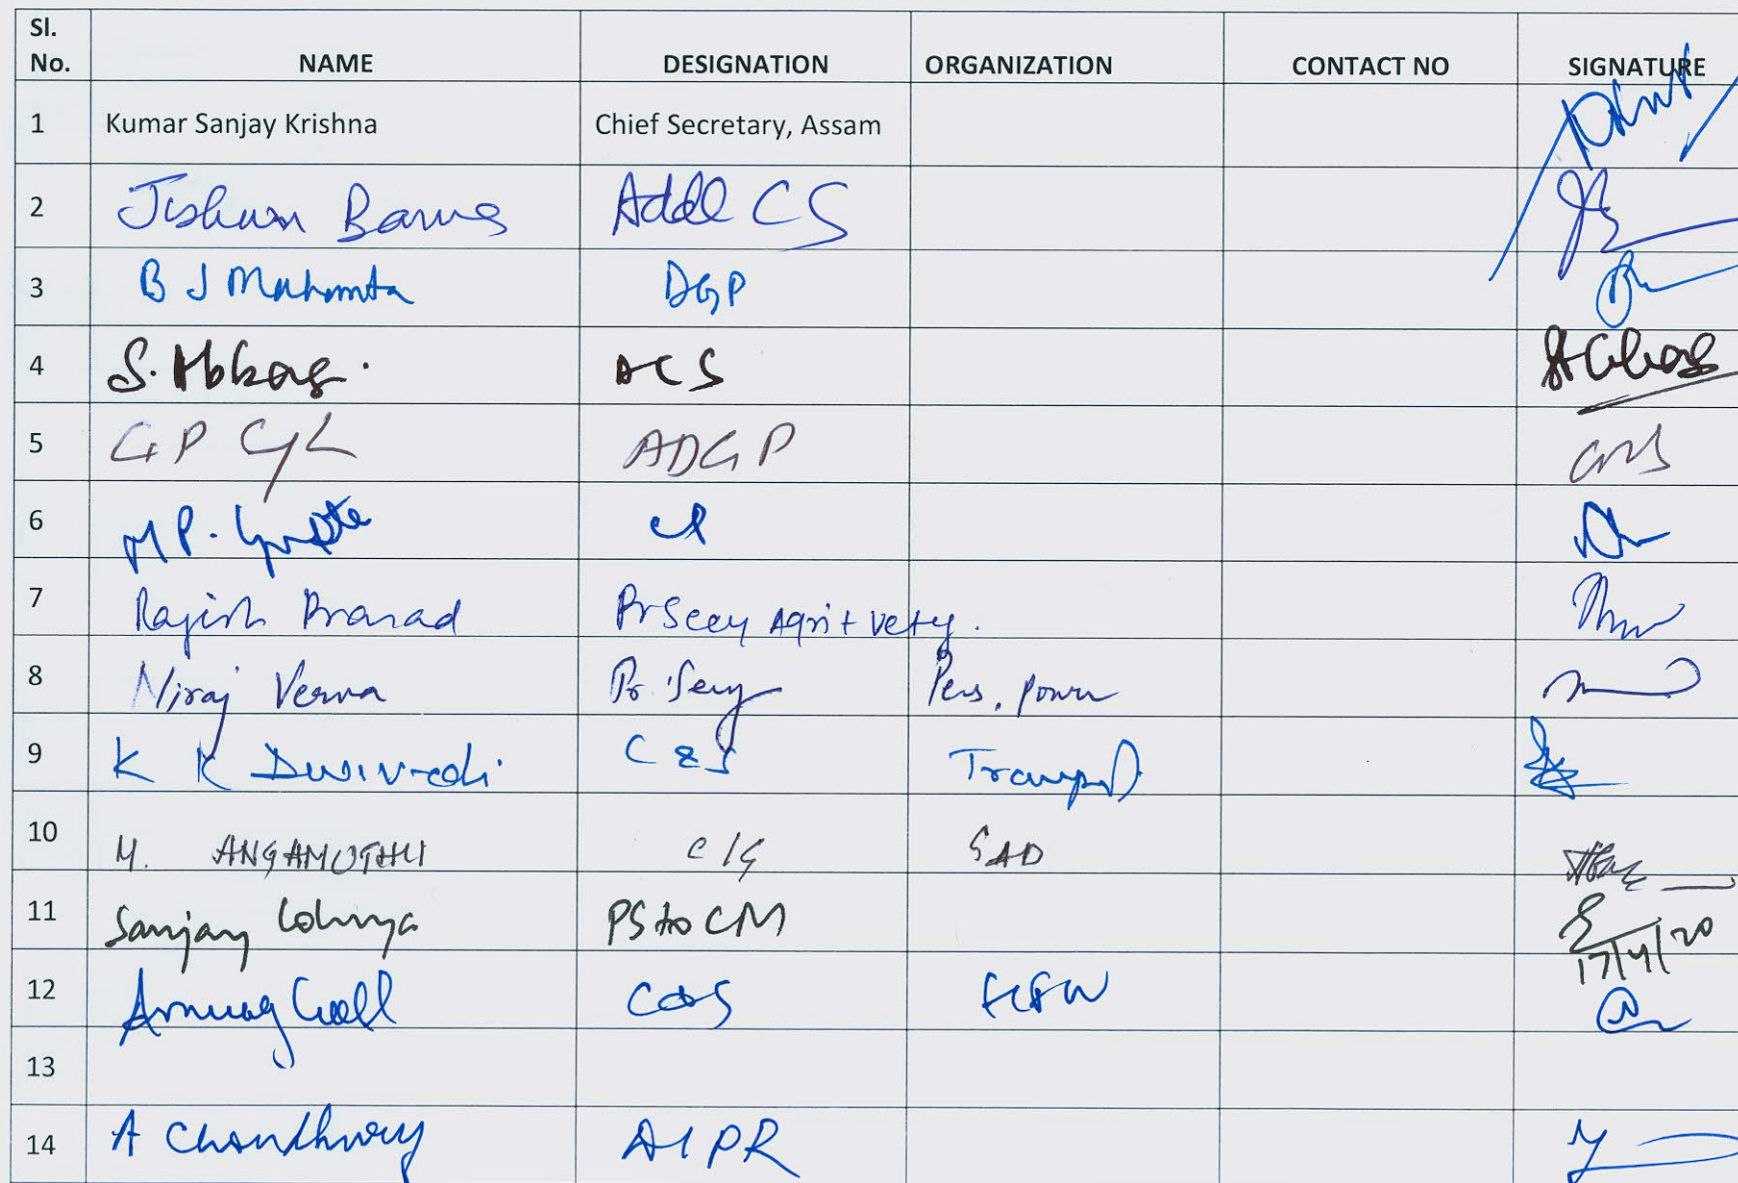 Sl. No. NAME DESIGNATION ORGANIZATION CONTACT NO SIGNATURE
1 Kumar Sanjay Krishna Chief Secretary, Assam
2 Jishnu Barua Addl CS
3 B J Mahanta DGP
4 S. Abbasi. ACS
5 G P ADGP
6 M P. Gupta
7 Rajesh Prasad Pr Secy Agri + Vety.
8 Niraj Verma Pr. Secy Pers, Power
9 K K Dwivedi C & S Transport
10 M. ANGAMUTHU C/S GAD
11 Sanjay Lohiya PS to CM 17/4/20
12 Anurag Goel C&S H&FW
13
14 A Choudhury AIPR